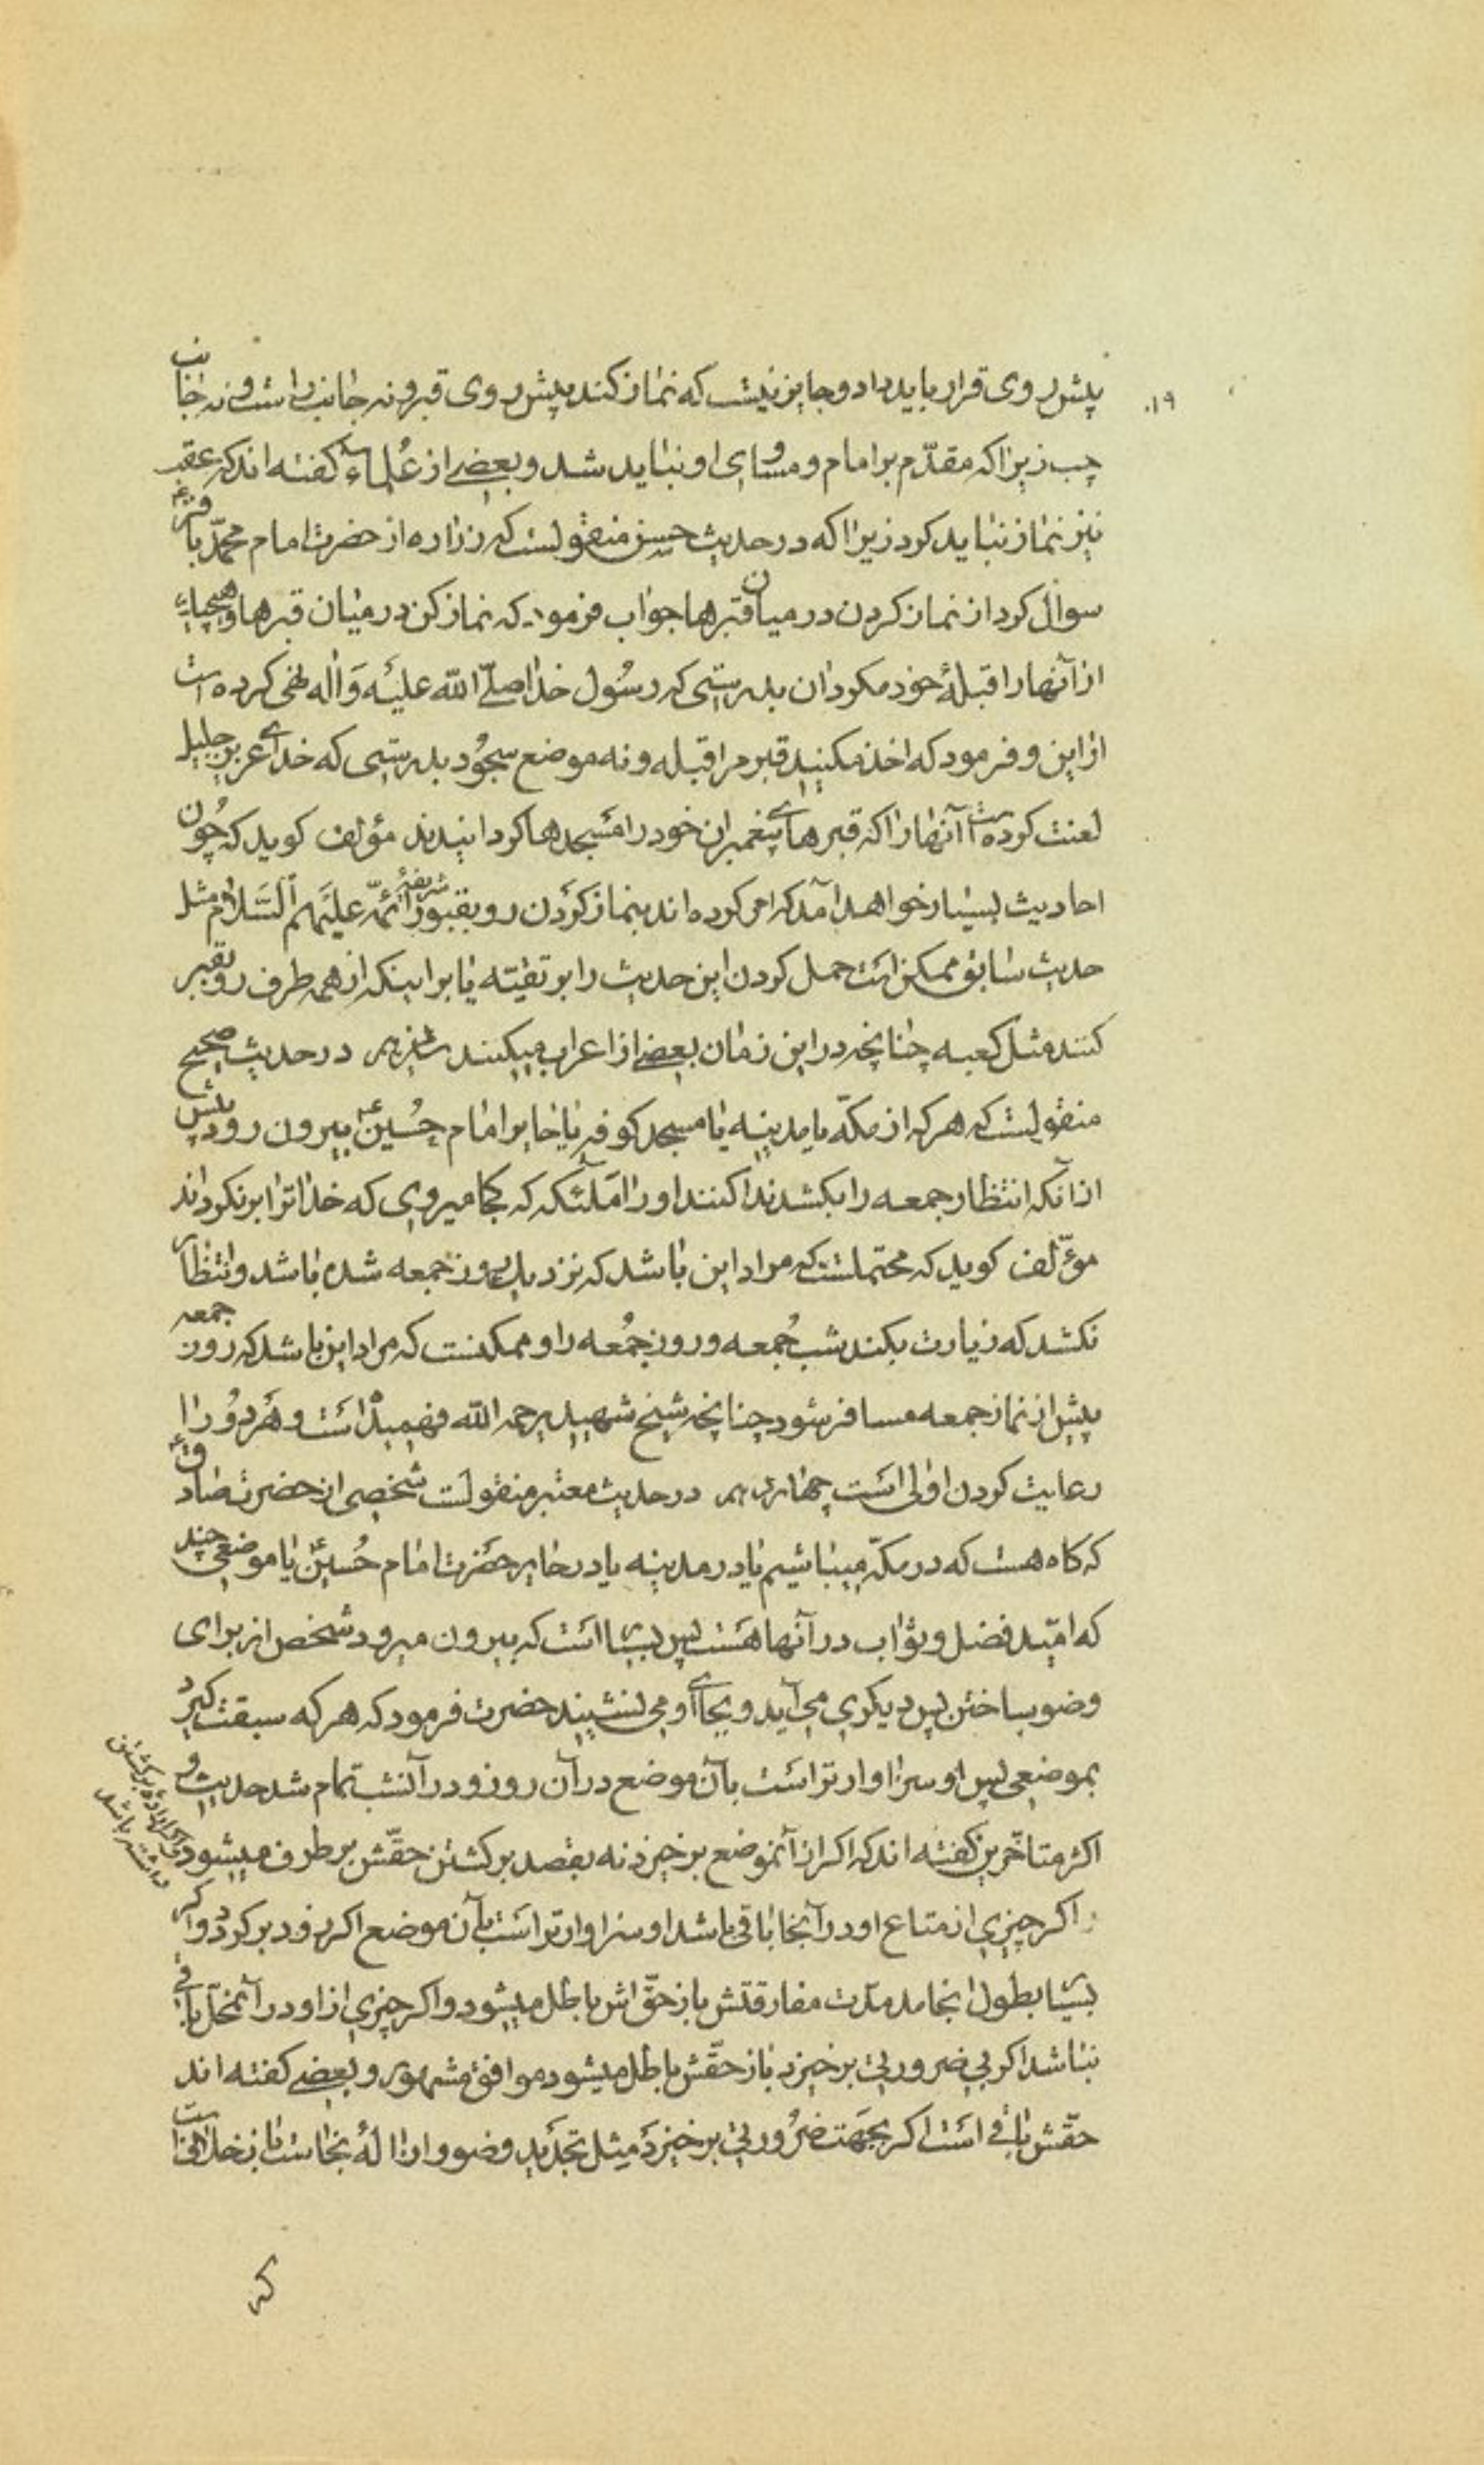 ۱۹۰
پیش روی قرار باید داد و جایز نیست که نماز کند پیش روی قبر و نه جانب راست و نه جانب
چب زیرا که مقدّم بر امام و مساوی او نباید شد و بعضی از عُلماء کفته اند که عقب
نیز نماز نباید کرد زیرا که در حدیث حسن منقولست که زراره از حضرت امام محمّد باقر ع
سوال کرد از نماز کردن در میان قبرها جواب فرمود که نماز کن در میان قبرها و هیچیك
از آنها را قبلهٔ خود مکردان بدرستی که رسُول خدا صلّی الله علیه وَاله نهی کرده است
از این و فرمود که اخذ مکنید قبر مرا قبله و نه موضع سجُود بدرستی که خدای عز و جلیل
لعنت کرده است آنها را که قبرهای پیغمبران خود را مسجدها کردانیدند مؤلف کوید که چُون
احادیث بسیار خواهد آمد که امر کرده اند بنماز کردن رو بقبور شریفهٔ ائمّه علیَهم السَّلام مثل
حدیث سابق ممکن است حمل کردن این حدیث را بر تقیّه یا بر اینکه از همه طرف رو بقبر
کنند مثل کعبه چنانچه در این زمان بعضی از اعراب میکنند سیزدهم در حدیث صحیح
منقولست که هر که از مکّه یا مدینه یا مسجد کوفه یا حایر امام حُسین ع بیرون رود پیش
از آنکه انتظار جمعه را بکشد ندا کنند او را ملآئکه که کجا میروی که خدا ترا بر نکرداند
مؤلف کوید که محتملست که مراد این باشد که نزدیك بروز جمعه شده باشد و انتظار
نکشد که زیارت بکند شب جُمعه و روز جُمعه را و ممکنست که مراد این باشد که روز جمعه
پیش از نماز جمعه مسافر شود چنانچه شیخ شهید رحمه الله فهمیده است و هَر دوُ را
رعایت کردن اولی است چهاردهم در حدیث معتبر منقولست شخصی از حضرت صادق ع
که کاه هست که در مکّه میباشیم یا در مدینه یا در حایر حضرت امام حُسین ع یا موضعی چند
که امّید فضل و ثواب در آنها هَست پس بسیار است که بیرون میرود شخص از برای
وضو ساختن پس دیکری می آید و بجای او می نشیند حضرت فرمود که هر که سبقت کیرد
بموضعی پس او سزاوارتر است بآن موضع در آن روز و در آنشب تمام شد حدیث و
اکثر متاخّرین کفته اند که اکر از آنموضع برخیزد نه بقصد برکشتن حقّش بر طرف میشود و اکر ارادهٔ برکشتن داشته باشد
و اکر چیزی از متاع او در آنجا باقی باشد او سزاوارتر است بآن موضع اکر زود بر کردد و اکر
بسیار بطول انجامد مدّت مفارقتش باز حقّ اش باطل میشود و اکر چیزی از او در آنمحلّ باقی
نباشد اکر بی ضرورتی برخیزد باز حقّش باطل میشود موافق مشهور و بعضی کفته اند
حقّش باقی است اکر بجهت ضرُورتی برخیزد مثل تجدید وضو و ازالهٔ نجاست و این خلافی است
که